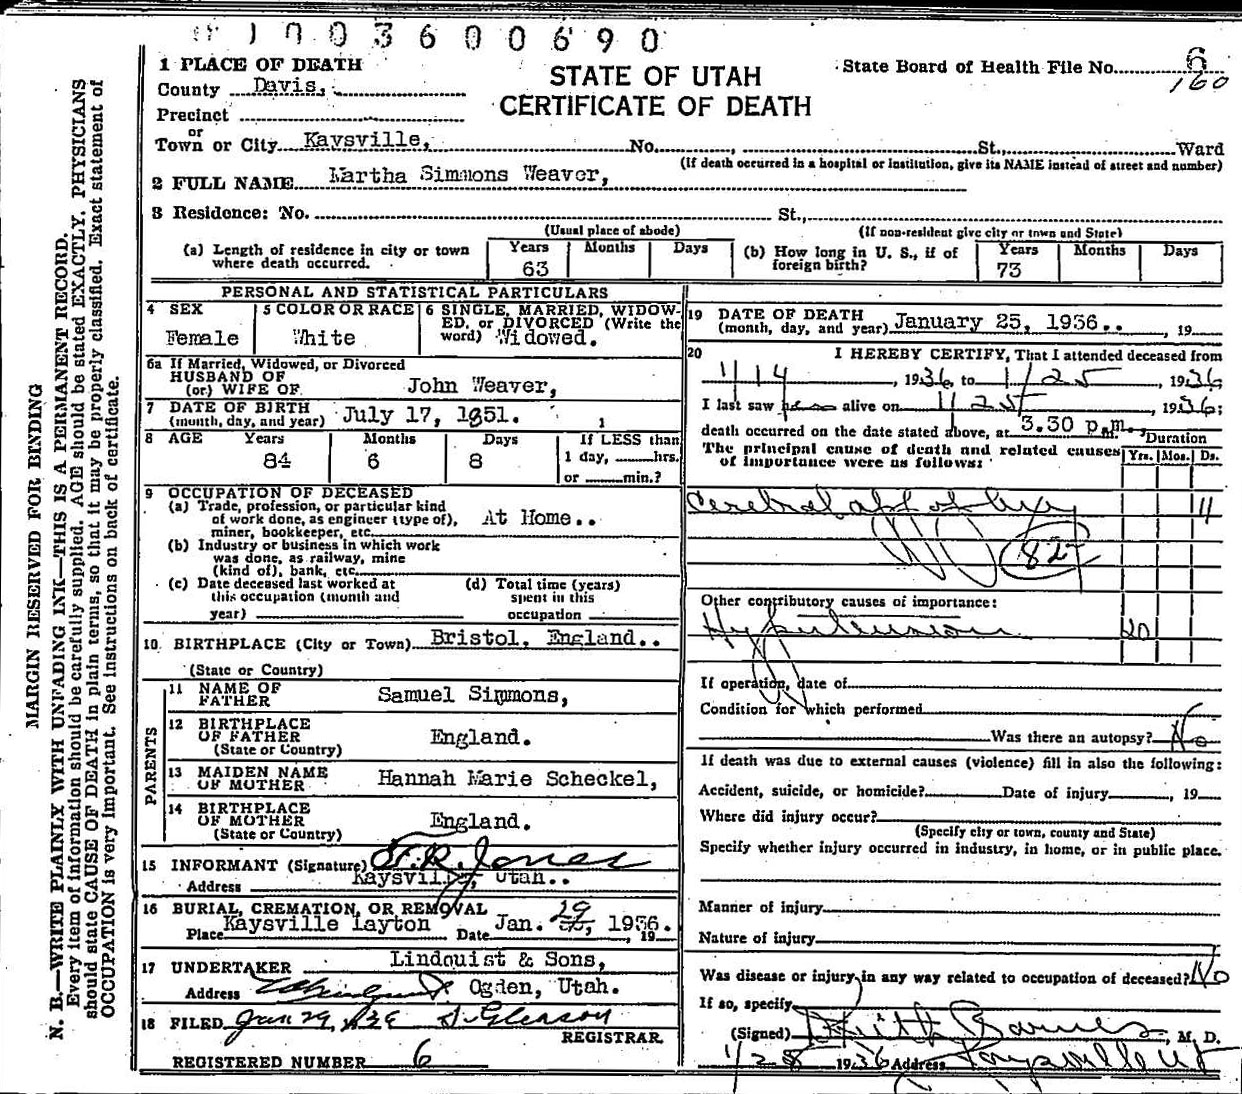 1003600690
1 PLACE OF DEATH
STATE OF UTAH
CERTIFICATE OF DEATH
State Board of Health File No. 6
160
County Davis,
Precinct
or
Town or City Kaysville, No. , St., Ward
(If death occurred in a hospital or institution, give its NAME instead of street and number)
2 FULL NAME Martha Simmons Weaver,
3 Residence: No. St.,
(Usual place of abode) (If non-resident give city or town and State)
(a) Length of residence in city or town where death occurred. Years 63 Months Days
(b) How long in U. S., if of foreign birth? Years 73 Months Days
PERSONAL AND STATISTICAL PARTICULARS
4 SEX Female
5 COLOR OR RACE White
6 SINGLE, MARRIED, WIDOWED, or DIVORCED (Write the word) Widowed.
6a If Married, Widowed, or Divorced
HUSBAND OF
(or) WIFE OF John Weaver,
7 DATE OF BIRTH
(month, day, and year) July 17, 1851. 1
8 AGE Years 84 Months 6 Days 8 If LESS than
1 day, hrs.
or min.?
9 OCCUPATION OF DECEASED
(a) Trade, profession, or particular kind
of work done, as engineer (type of),
miner, bookkeeper, etc. At Home..
(b) Industry or business in which work
was done, as railway, mine
(kind of), bank, etc.
(c) Date deceased last worked at
this occupation (month and
year)
(d) Total time (years)
spent in this
occupation
10 BIRTHPLACE (City or Town) Bristol, England..
(State or Country)
PARENTS
11 NAME OF
FATHER Samuel Simmons,
12 BIRTHPLACE
OF FATHER England.
(State or Country)
13 MAIDEN NAME
OF MOTHER Hannah Marie Scheckel,
14 BIRTHPLACE
OF MOTHER England.
(State or Country)
15 INFORMANT (Signature) F.R. Jones
Address Kaysville, Utah..
16 BURIAL, CREMATION, OR REMOVAL
Place Kaysville Layton Date Jan. 29, 1936. , 19
17 UNDERTAKER Lindquist & Sons,
Address Ogden, Utah.
18 FILED Jan 29, 1936 S. Gleason
REGISTRAR
REGISTERED NUMBER 6
19 DATE OF DEATH
(month, day, and year) January 25, 1936.. , 19
20 I HEREBY CERTIFY, That I attended deceased from
1/14 , 1936, to 1/25 , 1936
I last saw alive on 1/25 , 1936;
death occurred on the date stated above, at 3.30 p.m.
Duration
The principal cause of death and related causes
of importance were as follows:
Yrs. Mos. Ds.
Cerebral apoplexy 11
82
Other contributory causes of importance:
Hypertension 20
If operation, date of
Condition for which performed
Was there an autopsy? No
If death was due to external causes (violence) fill in also the following:
Accident, suicide, or homicide? Date of injury , 19
Where did injury occur?
(Specify city or town, county and State)
Specify whether injury occurred in industry, in home, or in public place.
Manner of injury
Nature of injury
Was disease or injury in any way related to occupation of deceased? No
If so, specify
(Signed) Keith Barnes, M. D.
1/28 1936 Address Kaysville Ut
MARGIN RESERVED FOR BINDING
N. B.—WRITE PLAINLY WITH UNFADING INK—THIS IS A PERMANENT RECORD.
Every item of information should be carefully supplied. AGE should be stated EXACTLY. PHYSICIANS
should state CAUSE OF DEATH in plain terms, so that it may be properly classified. Exact statement of
OCCUPATION is very important. See instructions on back of certificate.